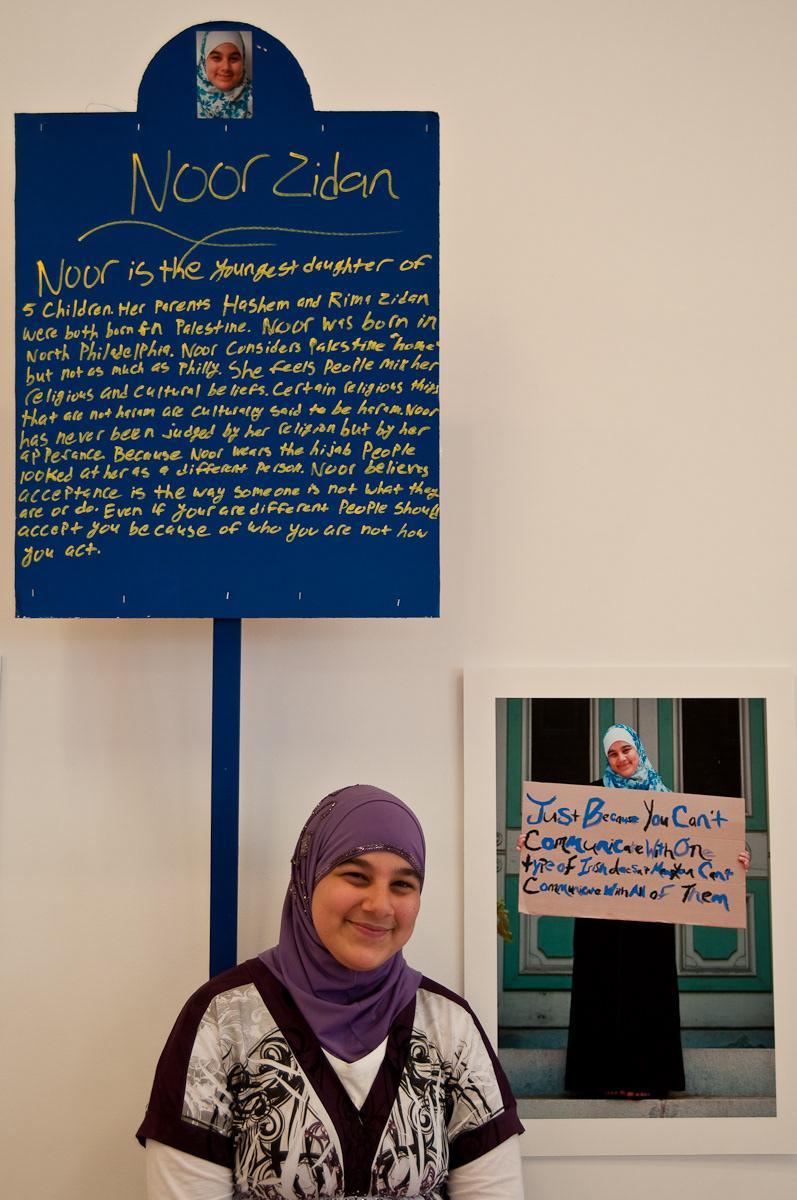 Noor Zidan
Noor is the youngest daughter of
5 Children. Her Parents Hashem and Rima Zidan
were both born in Palestine. Noor was born in
North Philadelphia. Noor Considers Palestine "home"
but not as much as Philly. She feels People mix her
religious and cultural beliefs. Certain religious things
that are not haram are culturally said to be haram. Noor
has never been judged by her religion but by her
apperance. Because Noor wears the hijab People
looked at her as a different Person. Noor believes
acceptance is the way someone is not what they
are or do. Even if your are different People should
accept you because of who you are not how
you act.
Just Because You Can't
Communicate With One
type of Irish doesn't Mean You Can't
Communicate With All of Them